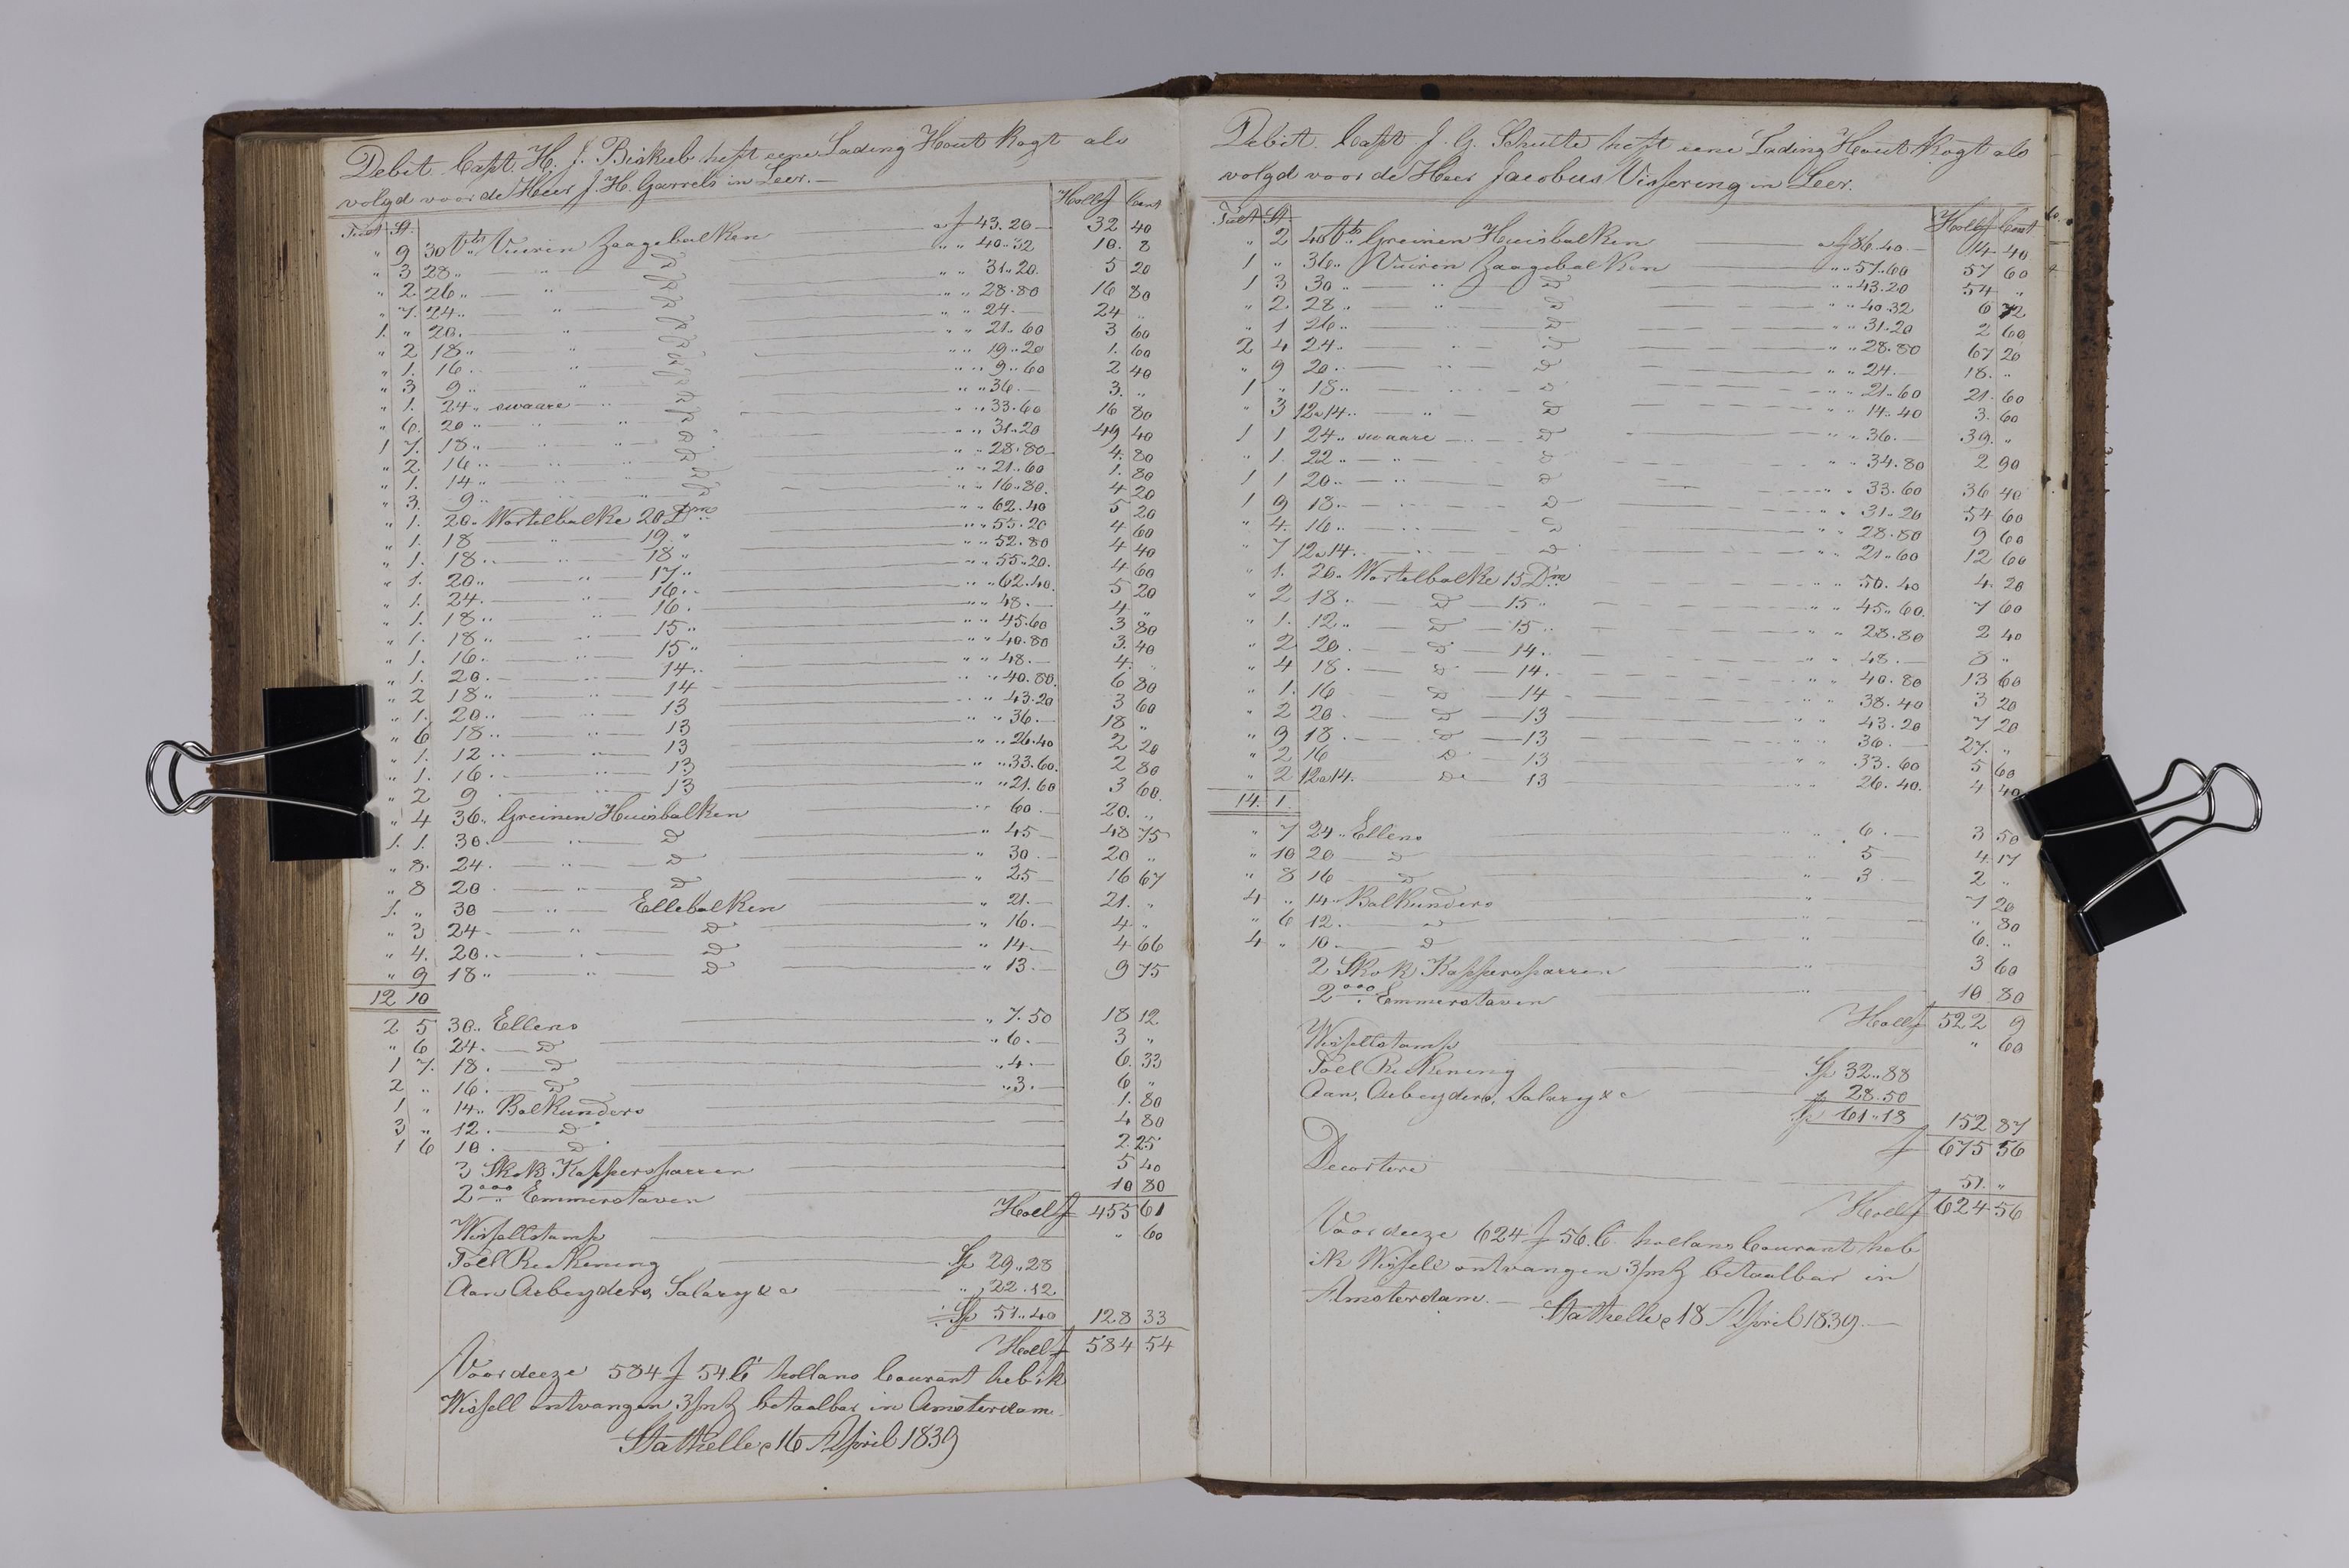 Debit Capt. H. J. Biskub heft eene Lading Hout Kogt als
volgd voor de Heer J. H. Garrels in Leer.—
Tult St. Holl f Cent
" 9 30 Vts Vuiren Zaagebalken a f 43.20 32 40
" 3 28 " — " — D " " 40.32 10. 8
" 2 26 " — " — D " " 31.20. 5 20
" 7. 24 " — " — D " " 28.80 16 80
1. " 20. — " — D " " 24.— 24 "
" 2 18 " — " — D " " 21.60 3 60
" 1. 16 " — " — D " " 19.20 1. 60
" 3 9 " — " — D " " 9.60 2 40
" 1. 24 " swaare — D " " 36.— 3. "
" 6. 20 " — " — D " " 33.60 16 80
1 7. 18 " — " — D " " 31.20 49 40
" 2. 16 " — " — D " " 28.80 4. 80
" 1. 14 " — " — D " " 21.60 1. 80
" 3. 9 " — " — D " " 16.80. 4 20
" 1. 20 " Wortelbalke 20 Dm " " 62.40 5 20
" 1. 18 — " — 19 " " " 55.20 4 60
" 1. 18 " — " — 18 " " " 52.80 4 40
" 1. 20 " — " — 17 " " " 55.20. 4 60
" 1. 24. — " — 16 " " " 62.40. 5 20
" 1. 18 " — " — 16. " " 48.— 4 "
" 1. 18 " — " — 15 " " " 45.60 3 80
" 1. 16. — " — 15 " " " 40.80 3. 40
" 1. 20. — " — 14 " " " 48.— 4. "
" 2 18 " — " — 14 " " 40.80. 6 80
" 1. 20 " — " — 13 " " 43.20 3 60
" 6 18 " — " — 13 " " 36.— 18 "
" 1. 12 " — " — 13 " " 26.40 2 20
" 1. 16. — " — 13 " " 33.60. 2 80
" 2 9 — " — 13 " " 21.60 3 60.
" 4 36. Greinen Huisbalken " 60.— 20. "
1. 1. 30. — " — D " 45— 48 75
" 8. 24. — " — D " 30.— 20 "
" 8 20 — " — D " 25— 16 67
1. " 30 — " — Ellebalken " 21.— 21. "
" 3 24 — " — D " 16.— 4 "
" 4. 20 " — " — D " 14.— 4 66
" 9 18 " — " — D " 13.— 9 75
12 10
2 5 30 " Ellens " 7.50 18 12
" 6 24. — D " 6.— 3 "
1 7. 18. — D " 4.— 6. 33
2 " 16. — D " 3.— 6 "
1 " 14 " Balkunders 1. 80
3 " 12. — D 4 80
1 6 10. — D 2. 25
3 Skok Kappersparren 5 40
2 ooo " Emmerstaven 10 80
Holl f 455 61
Wissellstamp " 60
Toll Reekening Sp 29..28
Aan Arbeyders, Salary & c " 22.12
Sp 51..40 128 33
Holl f 584 54
Voor deeze 584 f 54 Ct hollans Courant heb ik
Wissell ontvangen 3/m betaalbar in Amsterdam.
Stathelle 16 April 1839
Debit. Capt J. G. Schulte heft eene Lading Hout Kogt als
volgd voor de Heer Jacobus Vissering in Leer.
Tult St. Holl f Cent
" 2 40 Vts Greinen Huisbalken a f 86.40.— 14 40
1 " 36 " Vuiren Zaagebalken " " 57.60 57 60
1 3 30 " — " — D " " 43.20 54 "
" 2 28 " — " — D " " 40.32 6 72
" 1 26 " — " — D " " 31.20 2 60
2 4 24 " — " — D " " 28.80 67 20
" 9 20 " — " — D " " 24.— 18. "
1 " 18 " — " — D " " 21.60 21. 60
" 3 12 a 14 " — " — D " " 14.40 3. 60
1 1 24 " swaare — D " " 36.— 39. "
" 1. 22 " — " — D " " 34.80 2 90
1 1 20 " — " — D " " 33.60 36 40
1 9 18 " — " — D " " 31.20 54 60
" 4. 16 " — " — D " " 28.80 9 60
" 7 12 a 14. — " — D " " 21.60 12 60
" 1. 20. Wortelbalke 15 Dm " " 50.40 4. 20
" 2 18 " — D — 15 " " " 45.60. 7 60
" 1. 12 " — D — 15 " " " 28.80 2 40
" 2 20. — D — 14. " " 48.— 8 "
" 4 18. — D — 14. " " 40.80 13 60
" 1. 16 — D — 14 " " 38.40 3 20
" 2 20. — D — 13 " " 43.20 7 20
" 9 18. — D — 13 " " 36.— 27. "
" 2 16 — D — 13 " " 33.60 5 60
" 2 12 a 14. — D — 13 " " 26.40. 4 40
14. 1.
" 7 24 " Ellens " 6.— 3 50
" 10 20 — D " 5— 4 17
" 8 16 — D " 3— 2 "
4 " 14 " Balkunders " 7 20
" 6 12. — D " " 80
4 " 10. — D " 6. "
2 Skok Kappersparren " 3 60
2 ooo " Emmerstaven " 10 80
Holl f 522 9
Wissellstamp " 60
Toll Reekening Sp 32..88
Aan, Arbeyders, Salary & c " 28.50
Sp 61..18 152 87
f 675 56
Decortere 51. "
Holl f 624 56
Voor deeze 624 f 56. C. hollans Courant heb
ik Wissell ontvangen 3/m betaalbar in
Amsterdam.— Stathelle 18 April 1839.—